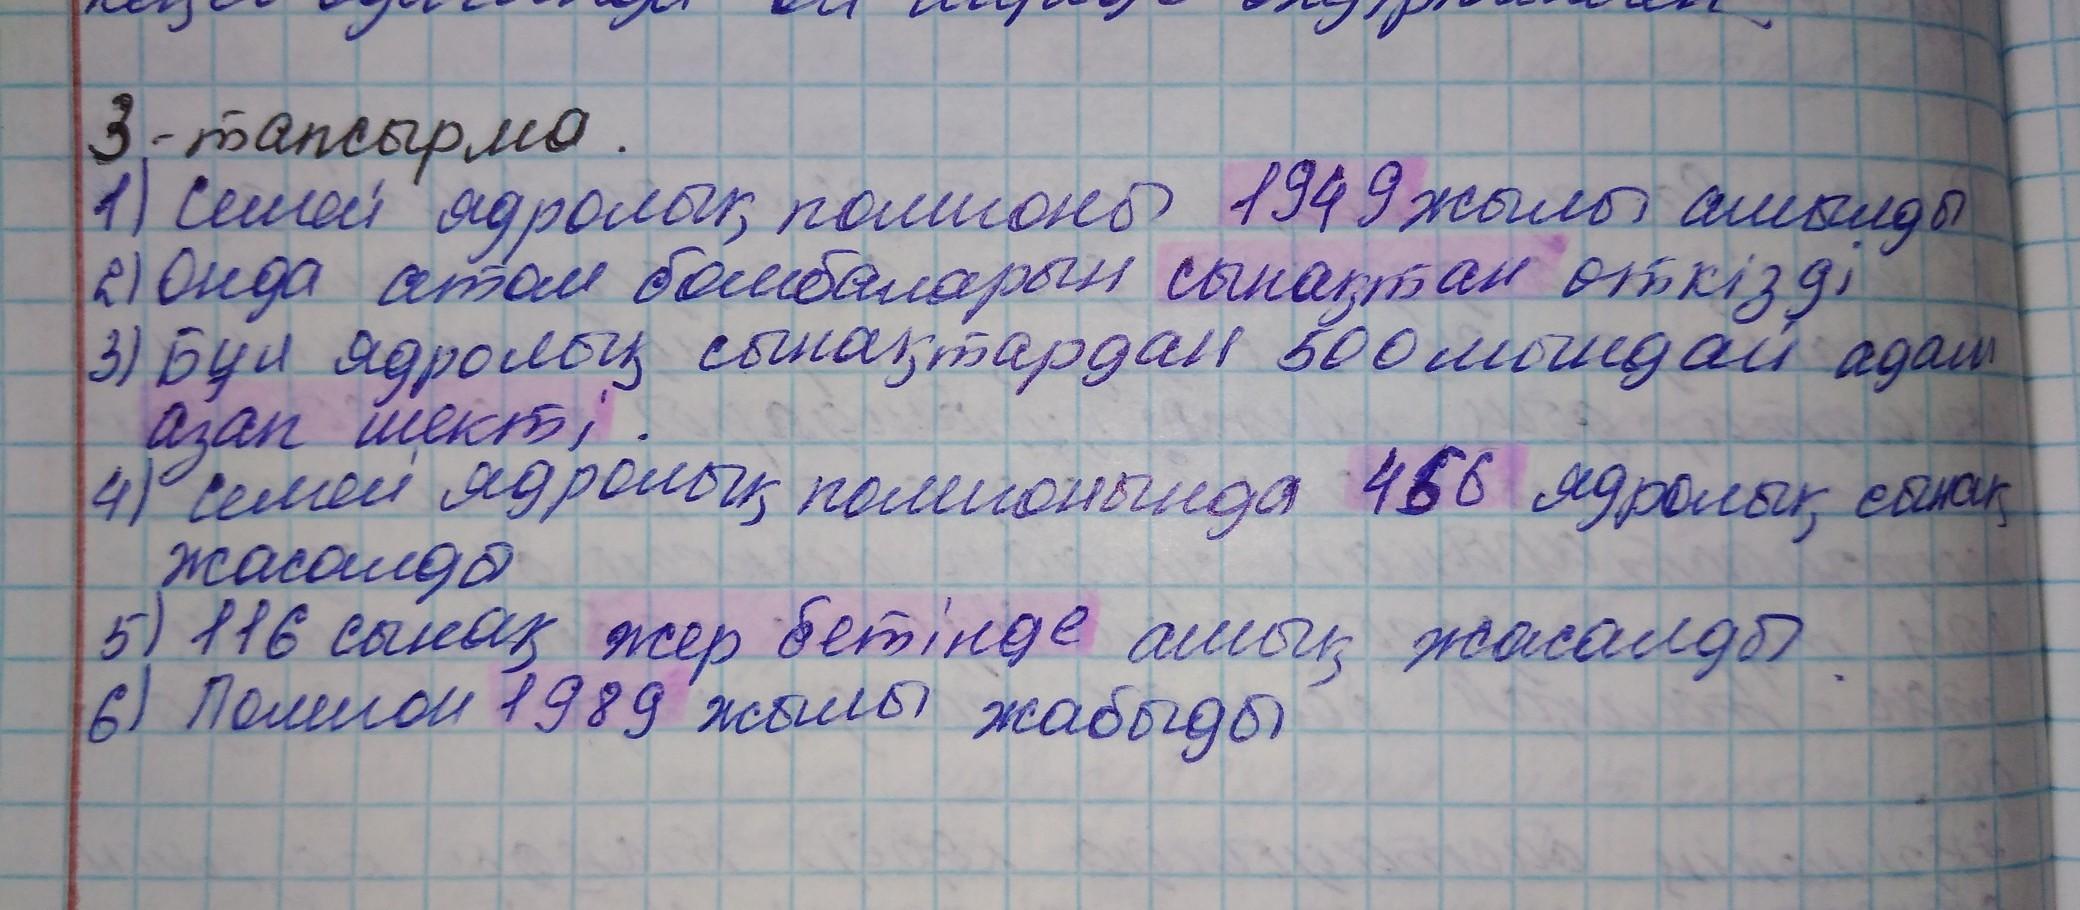 3-тапсырма.
1) Семей ядролық полигоны 1949 жылы ашылды
2) Онда атом бомбаларын сынақтан өткізді
3) Бұл ядролық сынақтардан 500 мыңдай адам
азап шекті.
4) Семей ядролық полигонында 466 ядролық сынақ
жасалды
5) 116 сынақ жер бетінде ашық жасалды.
6) Полигон 1989 жылы жабыды